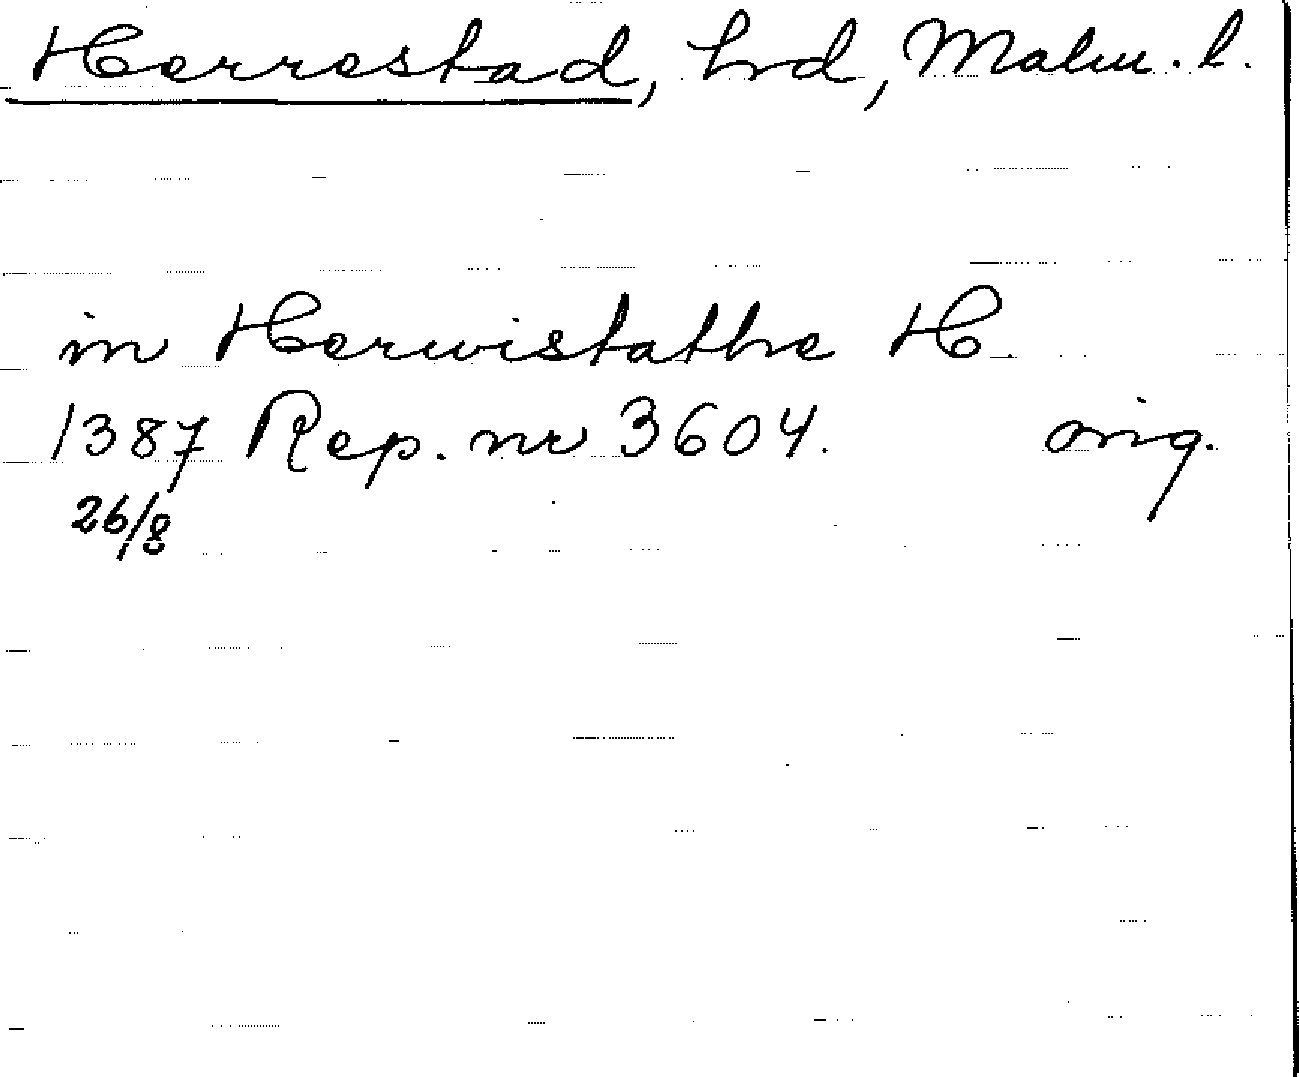 Herrestad, hrd, Malm. l.
in Herwistathe H
1387 Rep. nr 3604. orig.
26/8